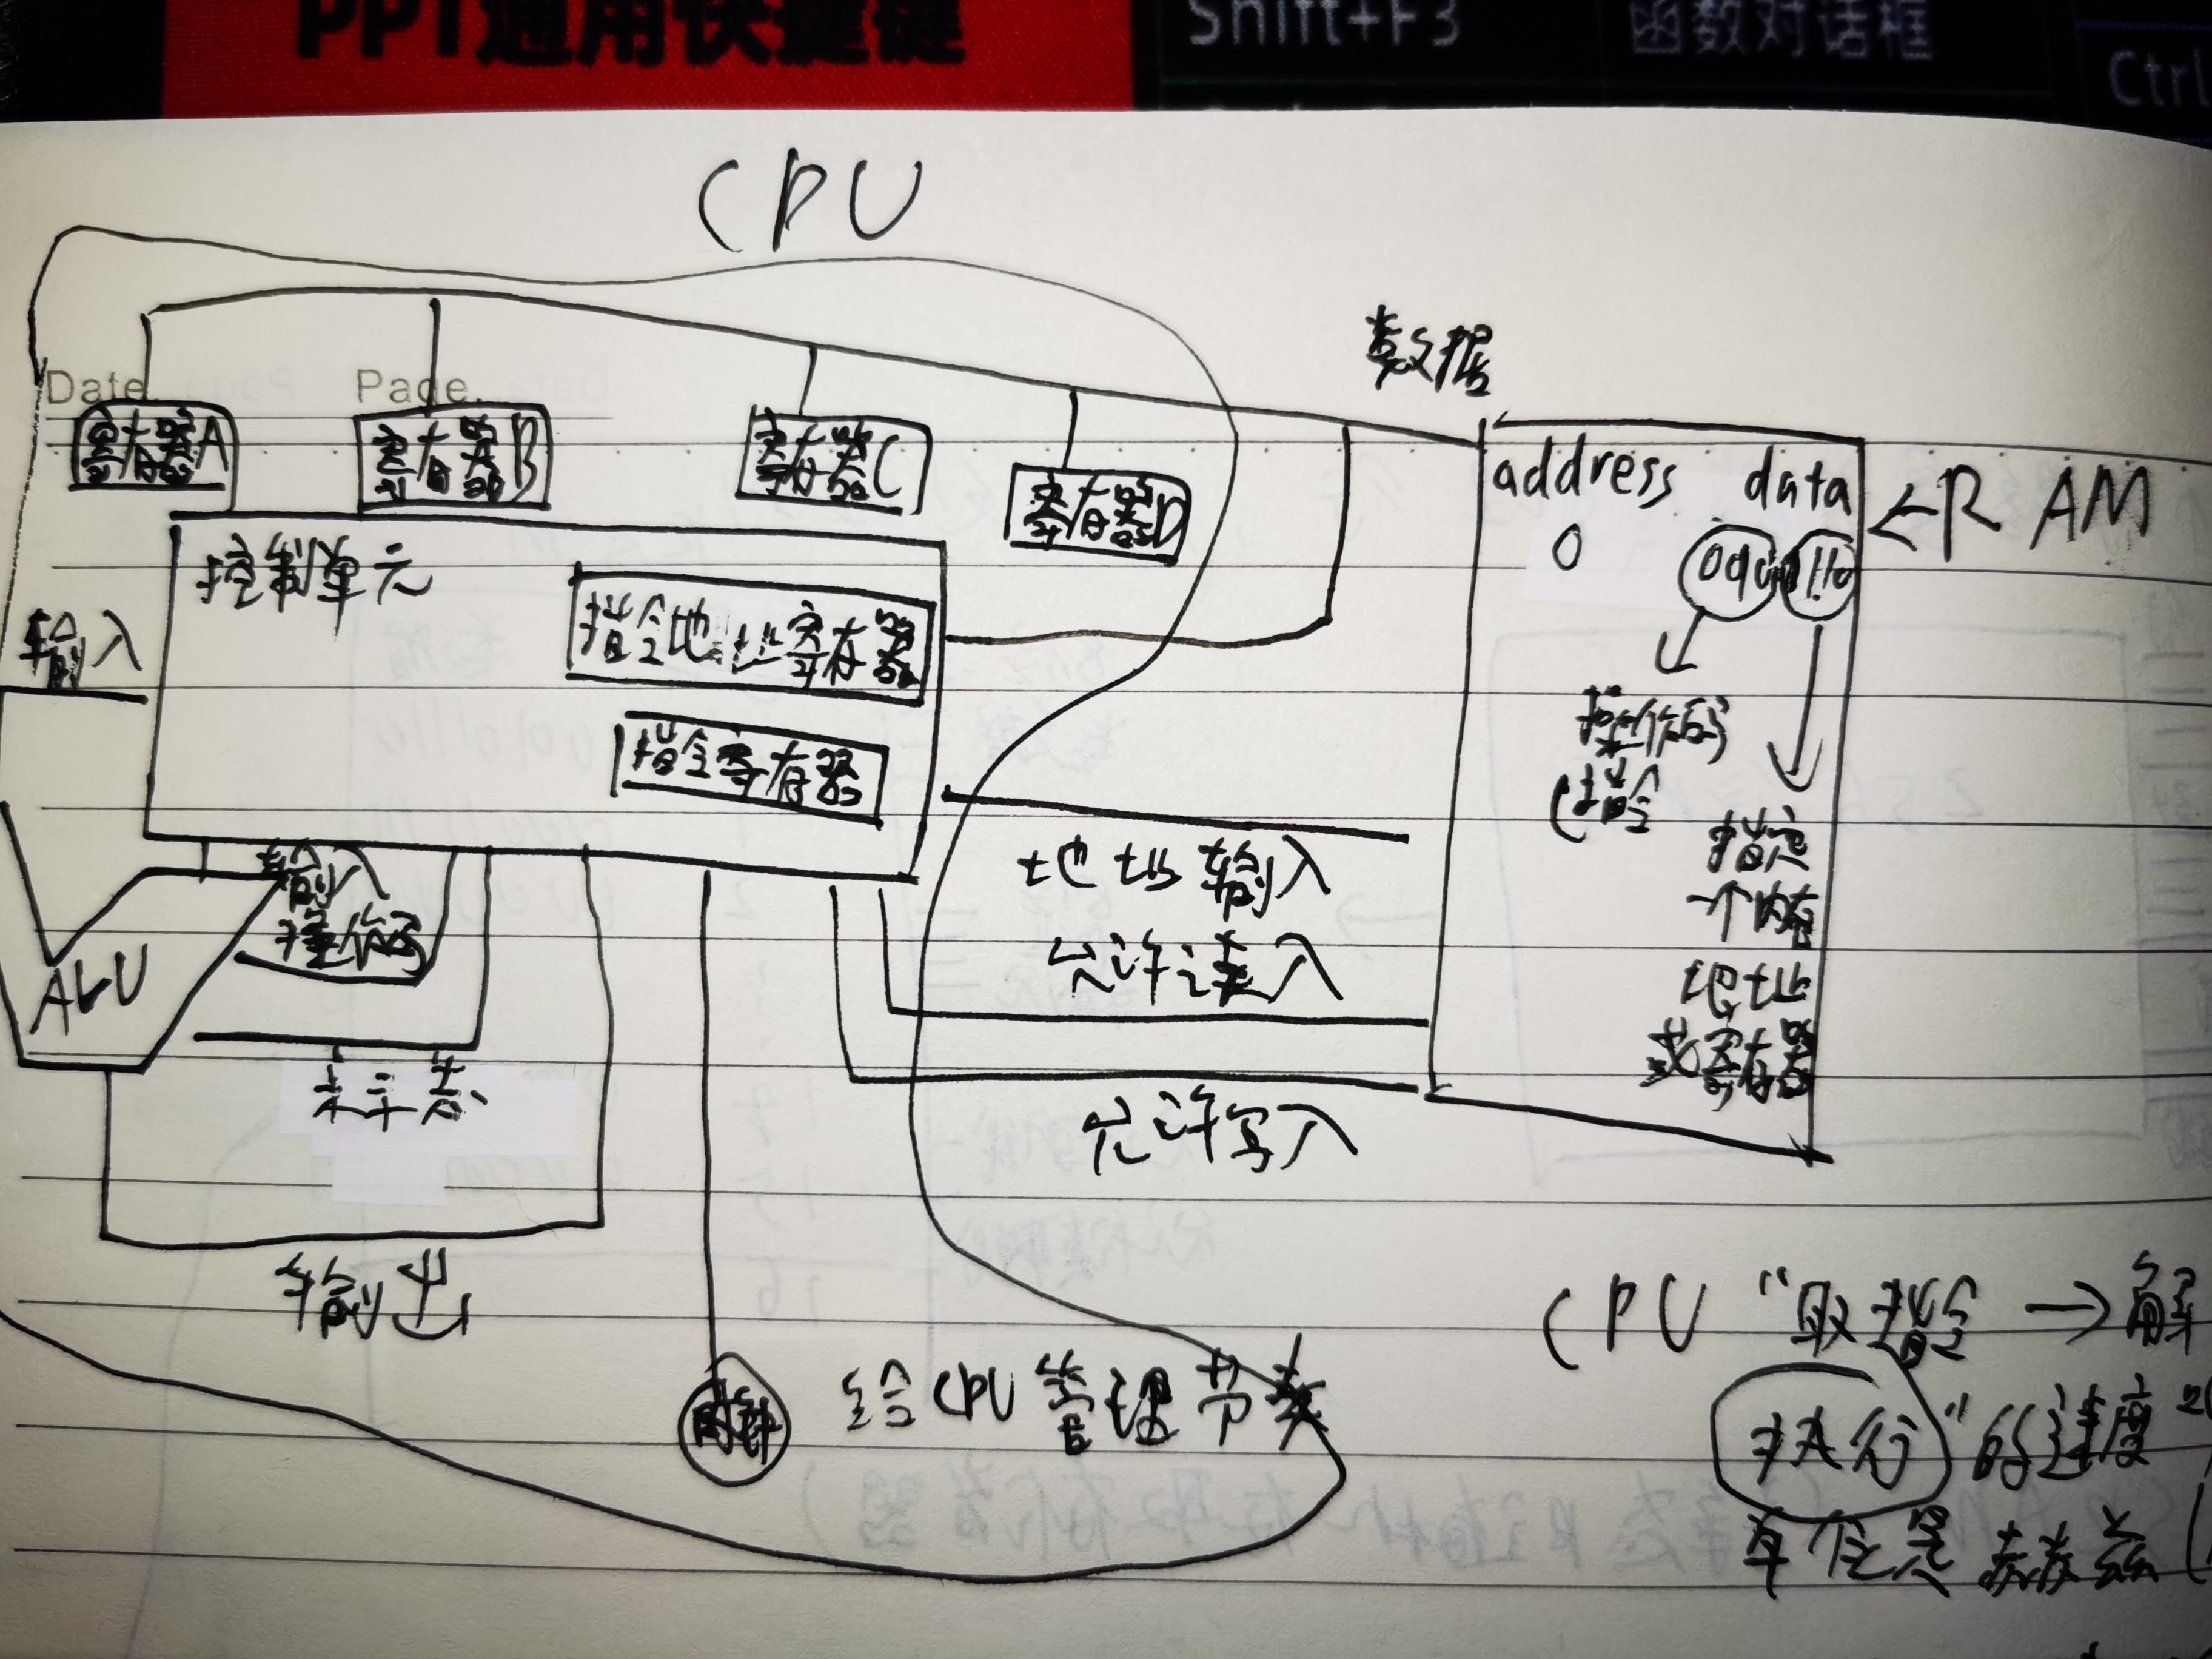 PPT通用快捷键
Shift+F3
函数对话框
Ctrl
CPU
Date.
Page.
数据
寄存器A
寄存器B
寄存器C
寄存器D
address data
0
←RAM
控制单元
指令地址寄存器
指令寄存器
输入
操作码
(指令
指定
一个内存
地址
或寄存器
输入
操作码
ALU
标志
地址输入
允许读入
允许写入
输出
时钟
给CPU管理节奏
CPU“取指令→解
执行”的速度
单位是赫兹(